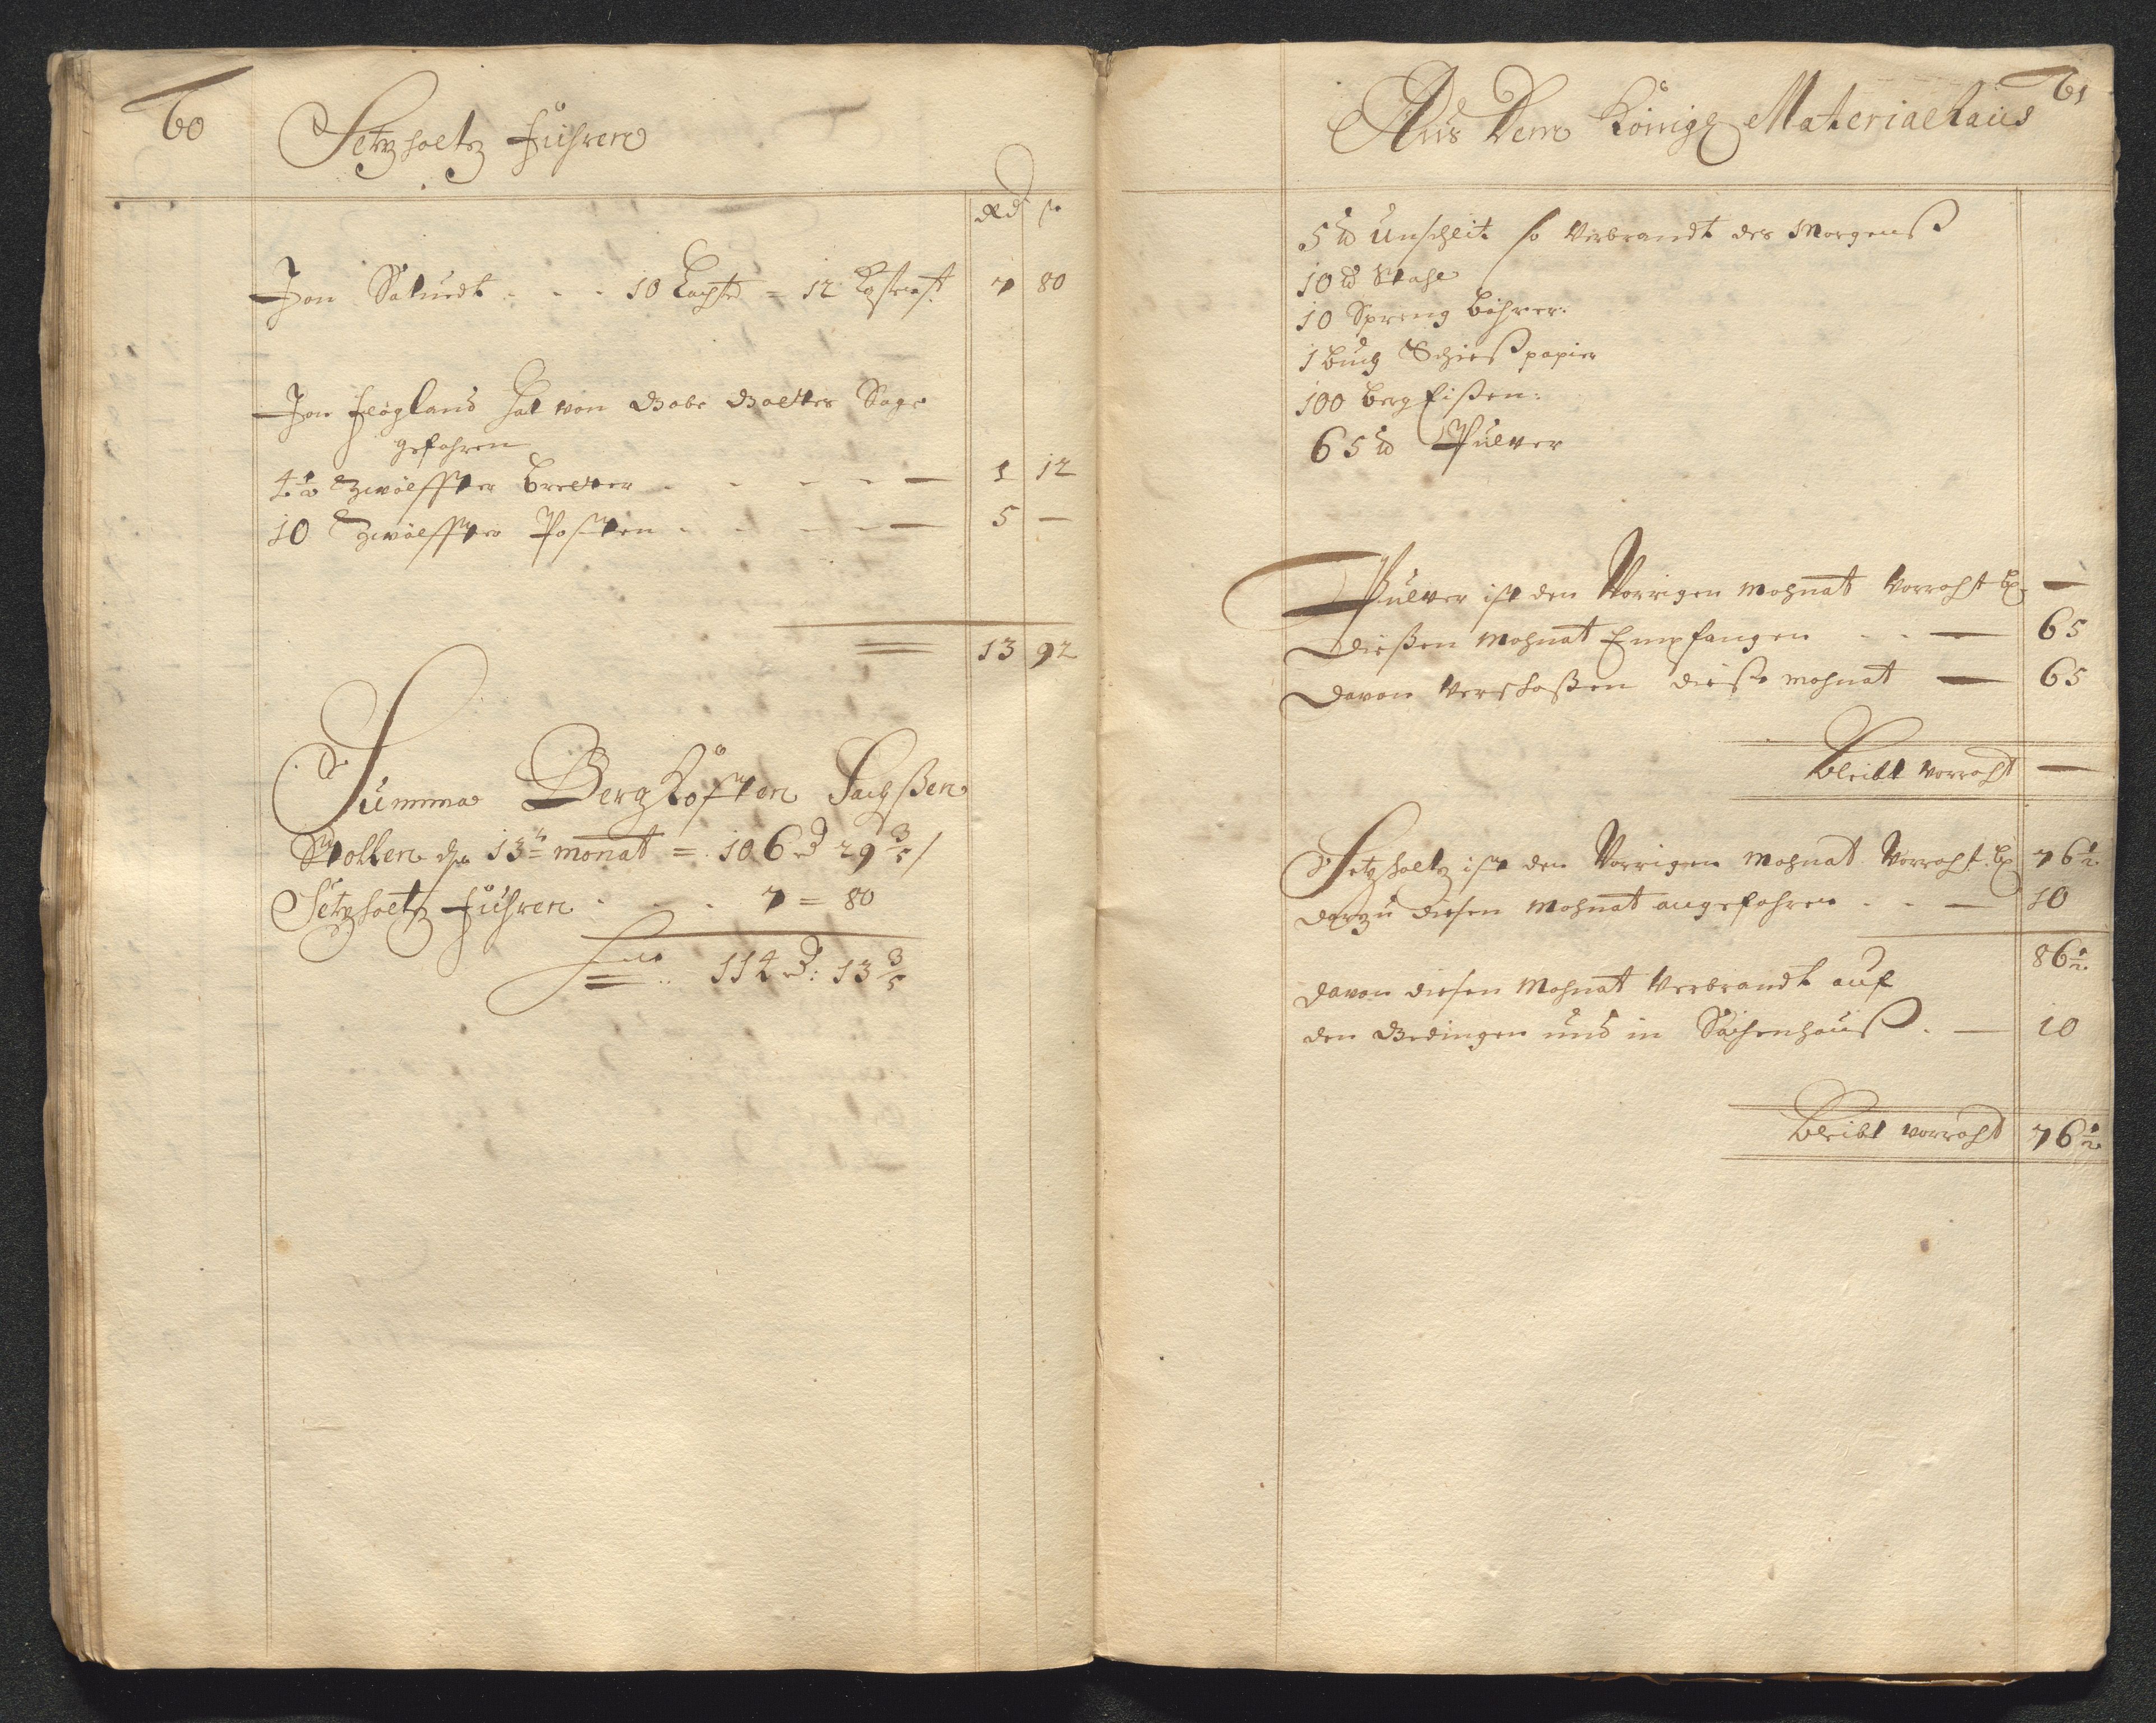 60
Setzholtz Führen
Rd ß
Jon Saluedt - - - 10 Lachtr = 12 7 80
Jon Föglaus hat von Gabe Boltes Sage
gefahren
4 1/2 Zwölffter Bretter - - - - — 1 12
10 Zwölffter Posten - - - - — 5 —
= 13 92
Summa Bergkosten Sachßen
Stollen 13 monat = 106 Rd 29 3/5 /
Setzholtz Führen - - - 7 = 80
Sma 114 Rd: 13 3/5
61
Aus Dem Königl Materialhaus
5 ℔ Unscheit so Verbrandt des Morgenß
10 ℔ Stahl
10 Spreng Böhrer.
1 Buch Schießpapier
100 Berg Eißen.
65 ℔ Pulver
Pulver ist den Vorrigen Mohnat Vorraht —
Dießen Mohnat Empfangen - - — 65
Davon Verschoßen dieße mohnat — 65
Bleibt Vorraht —
Setzholtz ist den Vorrigen Mohnat Vorraht 76 1/2
Darzu diesen Mohnat angefahren - - — 10
86 1/2
Davon diesen Mohnat Verbrandt auf
den Gedingen und in Sächenhauß. — 10
Bleibt vorraht 76 1/2